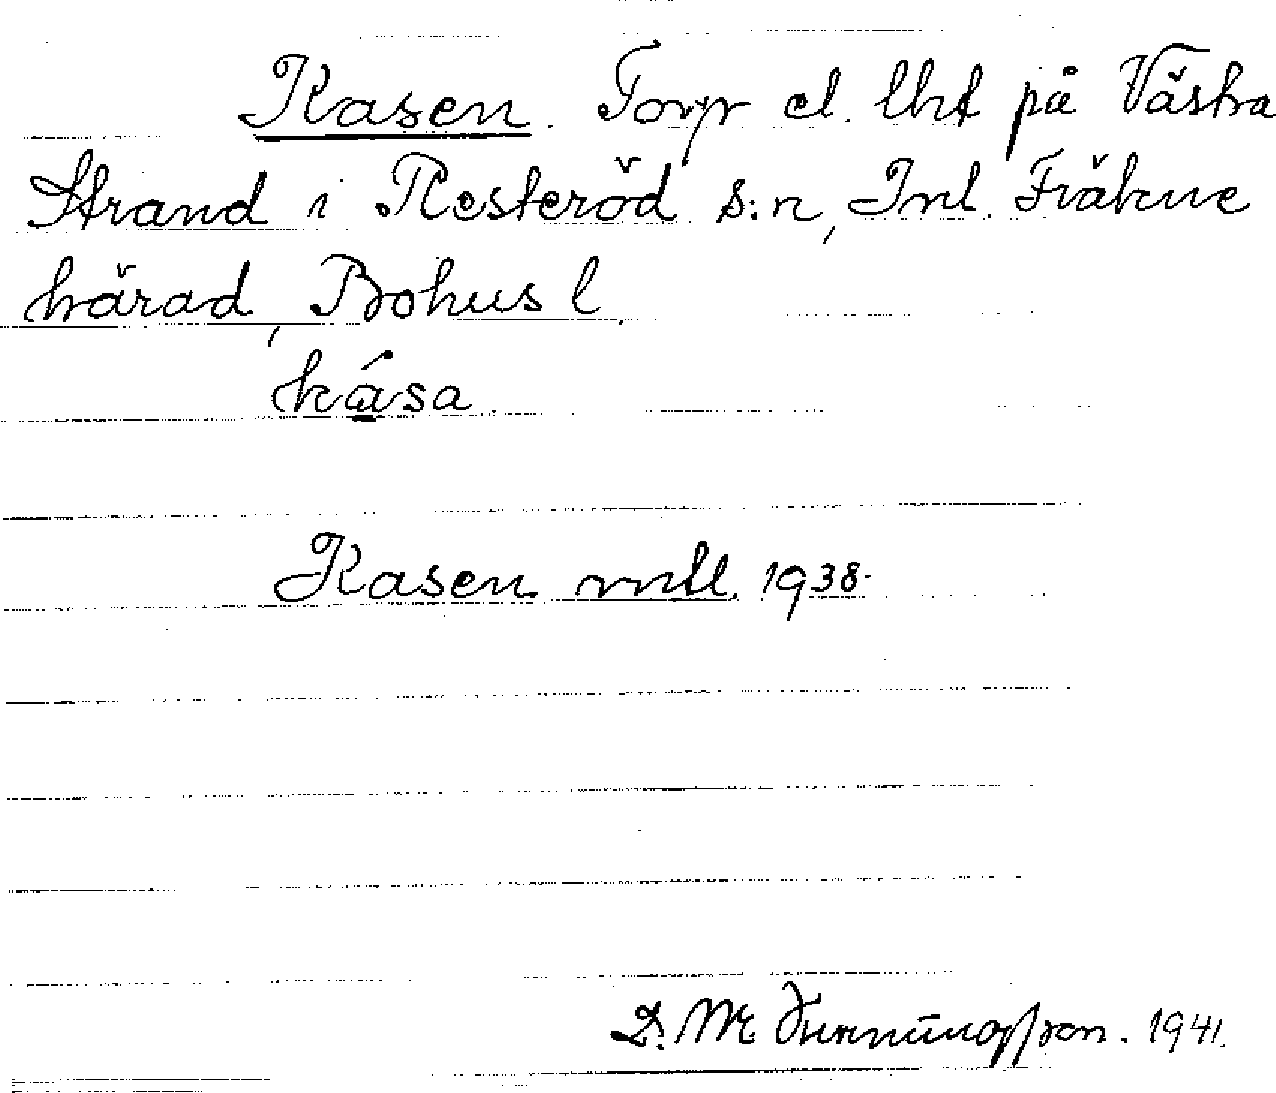 Kasen. Torp el. lht på Västra
Strand i Resteröd s:n, Inl. Fräkne
härad, Bohus l.
kása
Kasen mtl. 1938.
D. M. 1941.